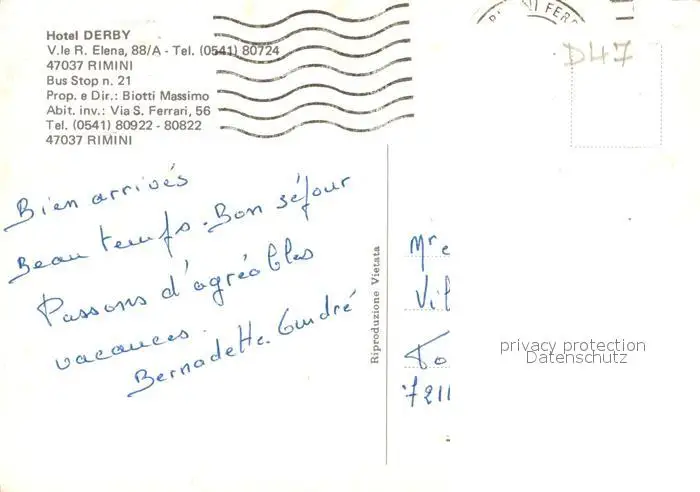 Hotel DERBY
V.le R. Elena, 88/A - Tel. (0541) 80724
47037 RIMINI
Bus Stop n. 21
Prop. e Dir.: Biotti Massimo
Abit. inv.: Via S. Ferrari, 56
Tel. (0541) 80922 - 80822
47037 RIMINI
D47
Bien arrivés
Beau temps. Bon séjour
Passons d'agréables
vacances.
Bernadette. André
Riproduzione Vietata
privacy protection
Datenschutz